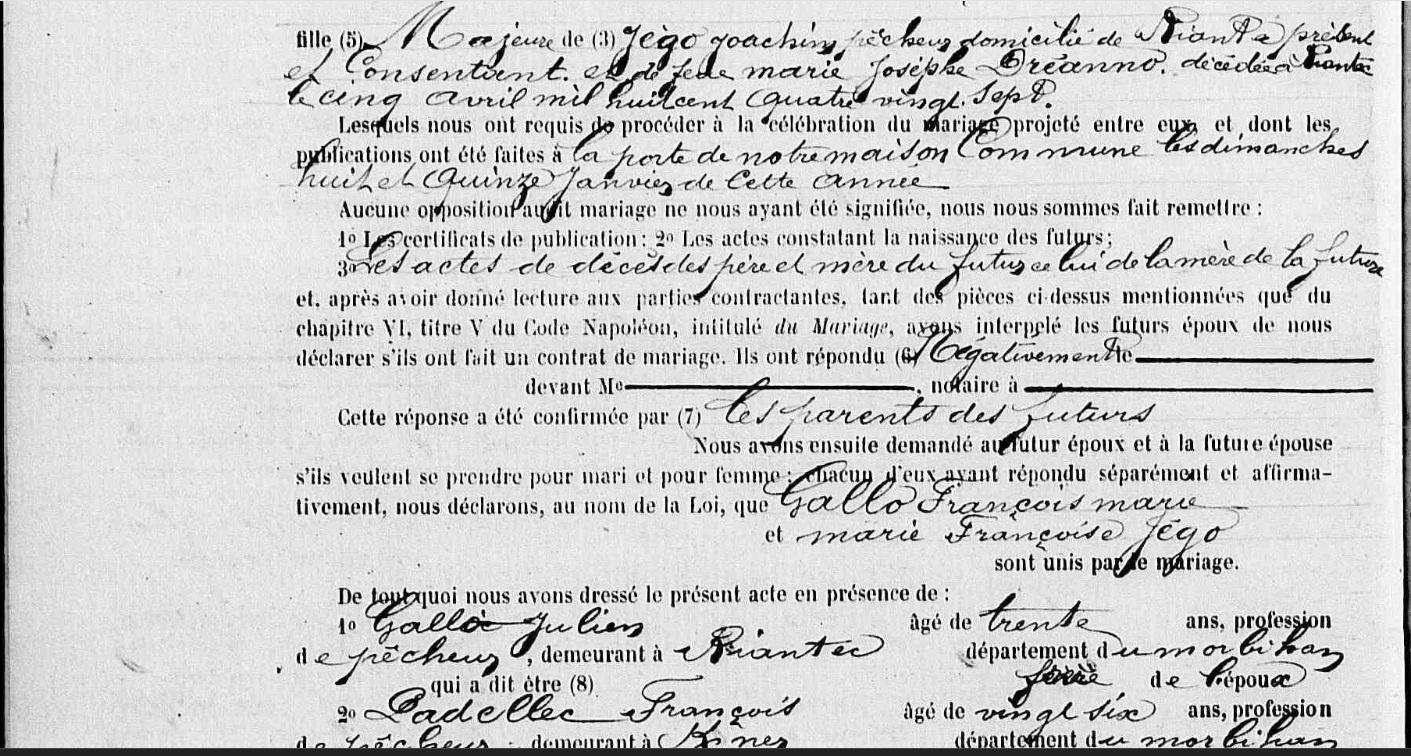 fille (5) Majeure de (3) Jégo Joachim pêcheur domicilié de Riantec présent
et Consentant. et de feue marie Josèphe Dréanno. décédée à Riantec
le cinq avril mil huit cent quatre vingt. Sept.
Lesquels nous ont requis de procéder à la célébration du mariage projeté entre eux, et dont les
publications ont été faites à la porte de notre maison Commune les dimanches
huit et Quinze Janvier de Cette année
Aucune opposition audit mariage ne nous ayant été signifiée, nous nous sommes fait remettre :
1º Les certificats de publication : 2º Les actes constatant la naissance des futurs;
3º Les actes de décès des père et mère du futur celui de la mère de la future
et, après avoir donné lecture aux parties contractantes, tant des pièces ci-dessus mentionnées que du
chapitre VI, titre V du Code Napoléon, intitulé du Mariage, avons interpelé les futurs époux de nous
déclarer s'ils ont fait un contrat de mariage. Ils ont répondu (6) Négativement le
devant Me , notaire à
Cette réponse a été confirmée par (7) les parents des futurs
Nous avons ensuite demandé au futur époux et à la future épouse
s'ils veulent se prendre pour mari et pour femme ; chacun d'eux ayant répondu séparément et affirma-
tivement, nous déclarons, au nom de la Loi, que Gallo François marie
et marie Françoise Jégo
sont unis par le mariage.
De tout quoi nous avons dressé le présent acte en présence de :
1º Gallo Julien âgé de trente ans, profession
de pêcheur , demeurant à Riantec département du morbihan
qui a dit être (8) frère de l'époux
2º Padellec François âgé de vingt six ans, profession
de pêcheur , demeurant à département du morbihan